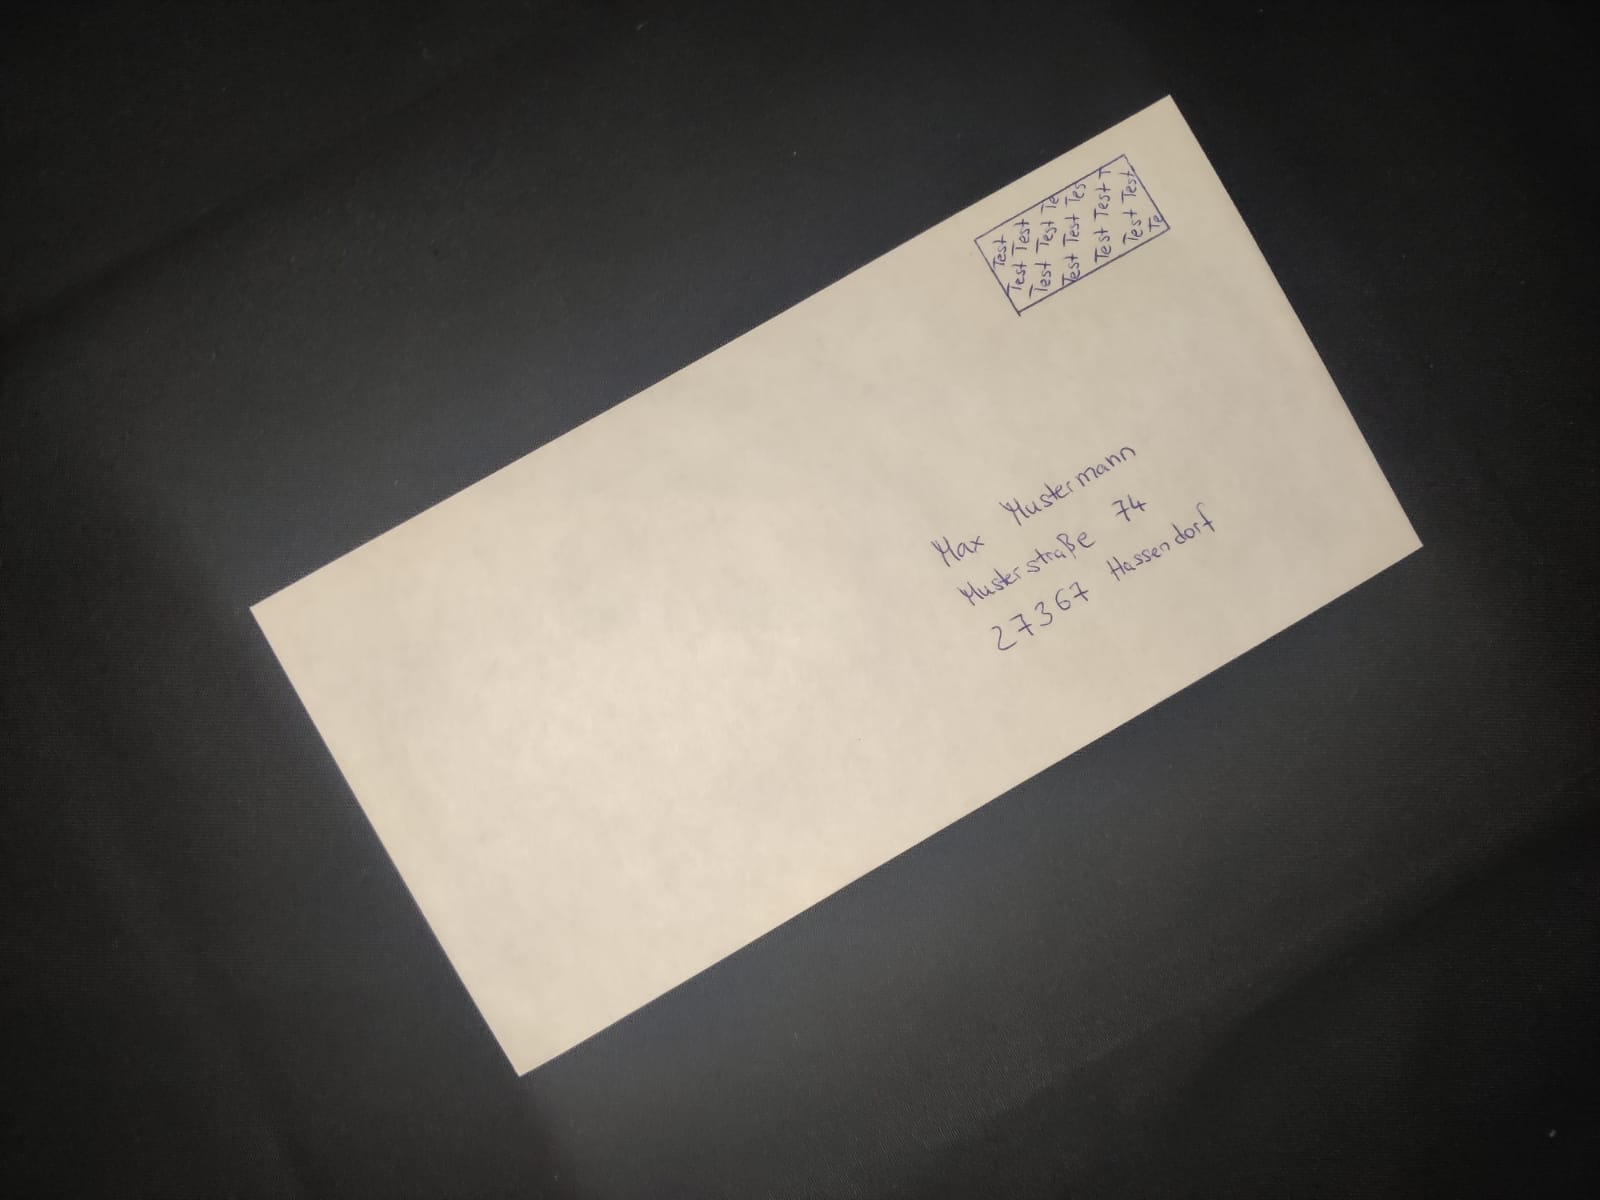 Test
Test Test
Test Test Te
Test Test Tes
Test Test T
Test Test
Te
Max Mustermann
Musterstraße 74
27367 Hassendorf